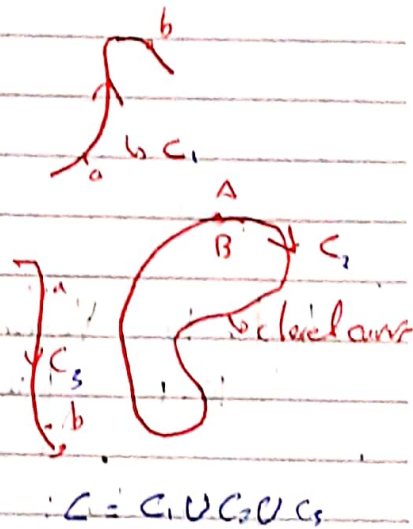 b
a
↳ C₁
A
B
C₂
↳ closed curve
a
C₃
b
∴ C = C₁ ∪ C₂ ∪ C₃